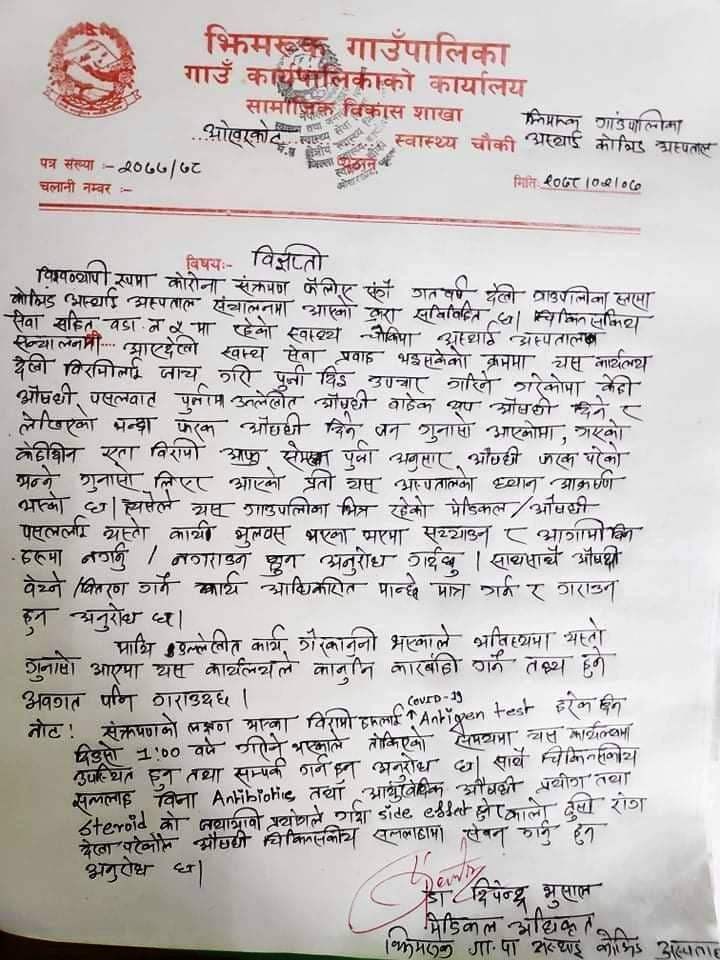 झिमरुक गाउँपालिका
गाउँ कार्यपालिकाको कार्यालय
सामाजिक विकास शाखा
ओखरकोट स्वास्थ्य चौकी
झिमरुक गाउँपालिका
अस्थाई कोभिड अस्पताल
पत्र संख्या :- २०७७/७८
चलानी नम्बर :-
मिति: २०७८।०२।०८
विषय:- विज्ञप्ती
विश्वव्यापी रुपमा कोरोना संक्रमण फैलिए सँगै गत वर्ष देखी गाउपालिका स्तरमा
कोभिड अस्थाई अस्पताल संचालनमा आएको कुरा सर्वविदित छ। चिकित्सकिय
सेवा सहित वडा. नं ४ मा रहेको स्वास्थ्य चौकिमा अस्थाई अस्पताल
सञ्चालनमा आएदेखी स्वास्थ्य सेवा प्रवाह भइसकेको क्रममा यस कार्यालय
देखी विरामिलाई जाच गरी पुर्जा दिइ उपचार गरिने गरेकोमा केही
औषधी पसलवाट पुर्जामा उल्लेखीत औषधी वाहेक थप औषधी दिने र
लेखिएको भन्दा फरक औषधी दिने जन गुनासो आएकोमा, गएको
केहीदिन एता विरामी आफु सँगको पुर्जा अनुसार औषधी फरक परेको
भन्ने गुनासो लिएर आएको प्रती यस अस्पतालको ध्यान आकर्षण
भएको छ। त्यसैले यस गाउपालिका भित्र रहेको मेडिकल / औषधी
पसललाई यस्तो कार्य भुलवस भएका भएमा सच्याउन र आगामी दिन
हरुमा नगर्नु / नगराउन हुन अनुरोध गर्दछु। साथसाथै औषधी
वेच्ने / वितरण गर्ने कार्य आधिकारित मान्छे मात्र गर्न र गराउन
हुन अनुरोध छ।
माथि उल्लेखीत कार्य गैरकानुनी भएकाले भविष्यमा यस्तो
गुनासो आएमा यस कार्यालयले कानुनि कारबाही गर्ने तथ्य हुने
अवगत पनि गराउदछ।
नोट! संक्रमणको लक्षण भएका विरामी हरुलाई COVID-19 Antigen test हरेक दिन
दिउसो 1:00 वजे गरिने भएकोले तोकिएको समयमा यस कार्यालयमा
उपस्थित हुन तथा सम्पर्क गर्न हुन अनुरोध छ। साथै चिकित्सकीय
सल्लाह विना Antibiotic तथा आयुर्वेदिक औषधी प्रयोग तथा
Steroid को जथाभावी प्रयोगले गर्दा side effect हो कालो दुसी रोग
देखा परेकोले औषधी चिकित्सकीय सल्लाहमा सेवन गर्नु हुन
अनुरोध छ।
डा दिपेन्द्र भुसाल
मेडिकल अधिकृत
झिमरुक गा.पा अस्थाई कोभिड अस्पताल